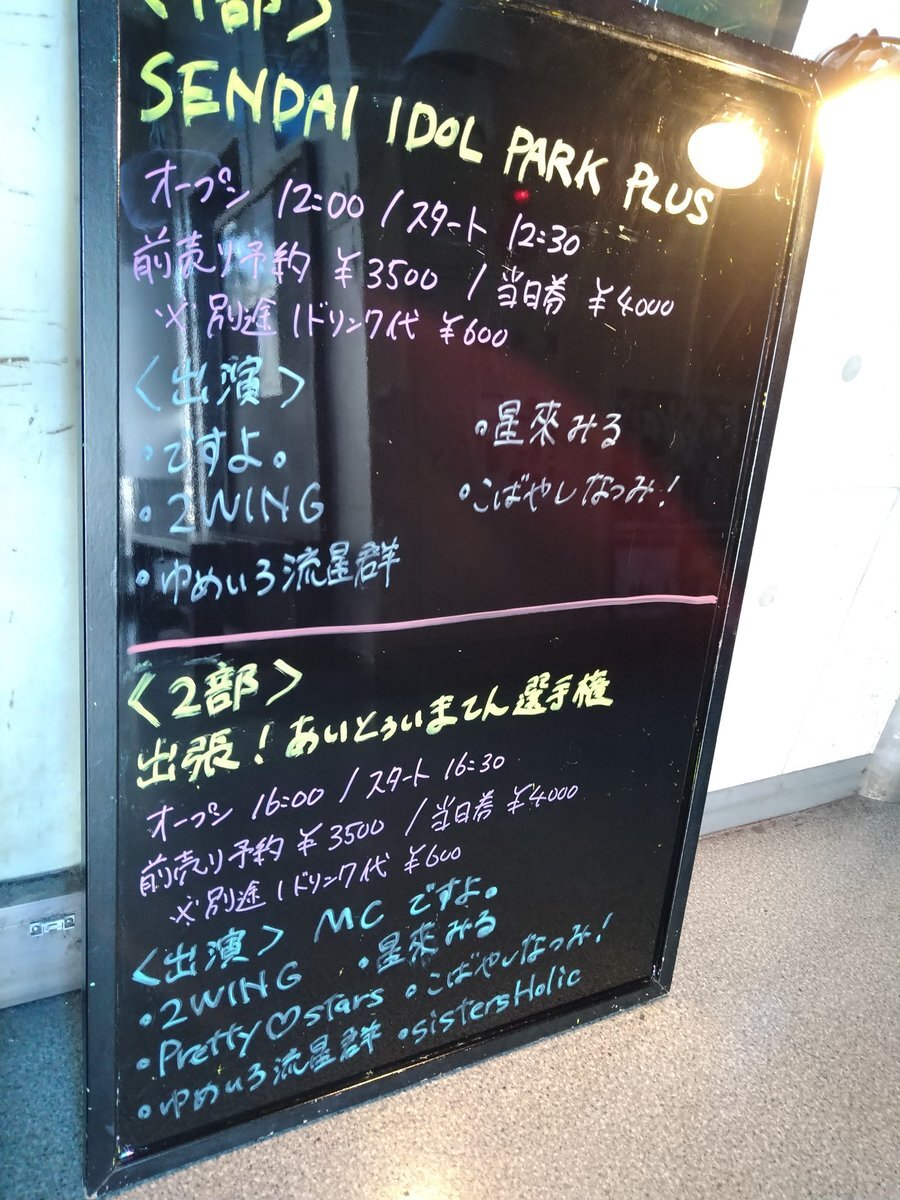 <1部>
SENDAI IDOL PARK PLUS
オープン 12:00 / スタート 12:30
前売り予約 ¥3500 / 当日券 ¥4000
※別途1ドリンク代 ¥600
<出演>
・ですよ。
・星來みる
・2WING
・こばやしなつみ!
・ゆめいろ流星群
<2部>
出張!あいとぅいまてん選手権
オープン 16:00 / スタート 16:30
前売り予約 ¥3500 / 当日券 ¥4000
※別途1ドリンク代 ¥600
<出演> MC ですよ。
・2WING ・星來みる
・Pretty♡stars ・こばやしなつみ!
・ゆめいろ流星群 ・sistersHolic